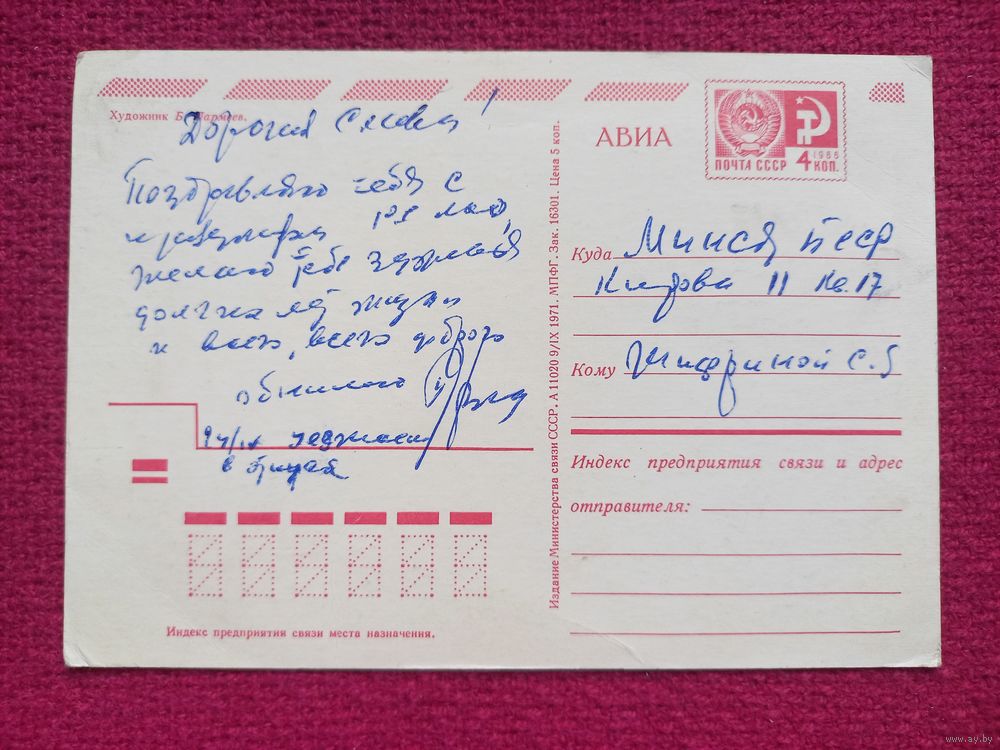 Художник Б. Пармеев.
Дорогая
Поздравляю тебя с
желаю тебе здоровья
долгих лет жизни
и всего, всего доброго
обнимаю
в
Индекс предприятия связи места назначения.
Издание Министерства связи СССР. А 11020 9/IX 1971. МПФГ. Зак. 16301. Цена 5 коп.
АВИА
ПОЧТА СССР
1966
4 КОП.
Куда Минск БССР
Кирова 11 кв. 17
Кому
Индекс предприятия связи и адрес
отправителя:
www.ay.by